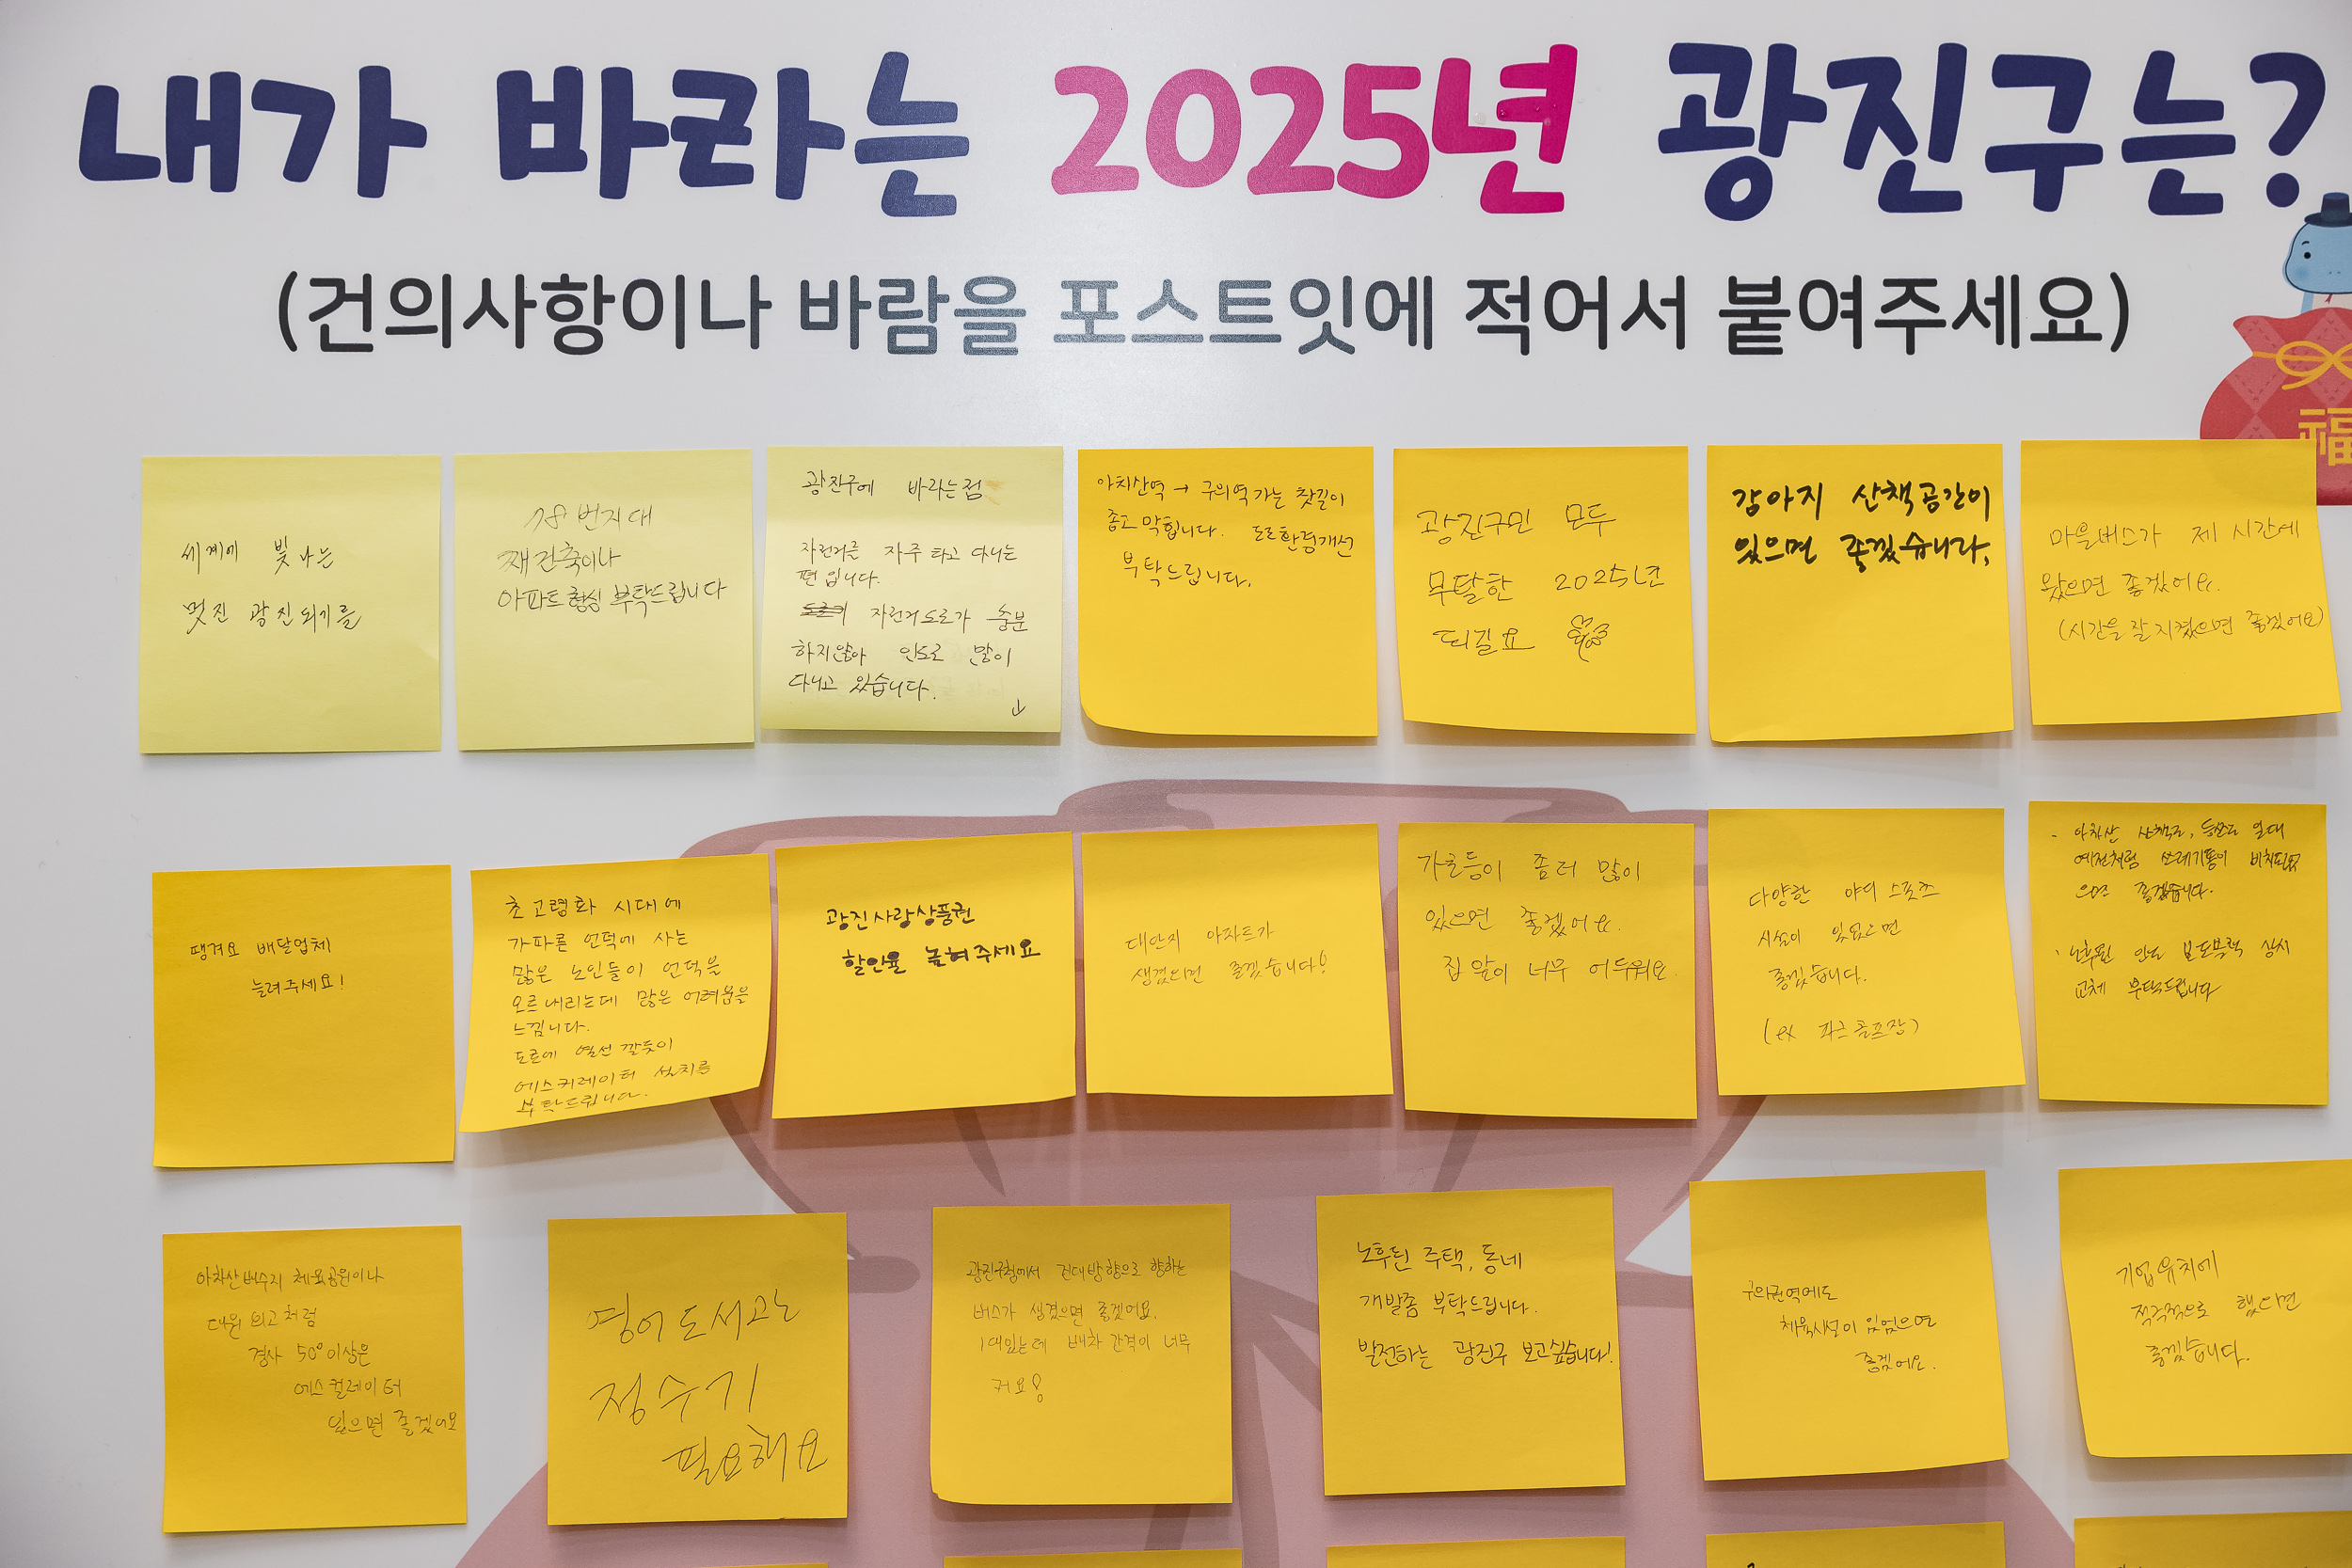 내가 바라는 2025년 광진구는?
(건의사항이나 바람을 포스트잇에 적어서 붙여주세요)
福
세계에 빛나는
멋진 광진되기를
78번지대
재건축이나
아파트형성 부탁드립니다
광진구에 바라는점
자전거를 자주 타고 다니는
편입니다.
자전거도로가 충분
하지않아 인도로 많이
다니고 있습니다.
↓
아차산역 → 구의역 가는 찻길이
좁고 막힙니다. 도로환경개선
부탁드립니다.
광진구민 모두
무탈한 2025년
되길요
강아지 산책공간이
있으면 좋겠습니다.
마을버스가 제 시간에
왔으면 좋겠어요.
(시간을 잘 지켰으면 좋겠어요)
땡겨요 배달업체
늘려주세요!
초고령화 시대에
가파른 언덕에 사는
많은 노인들이 언덕을
오르내리는데 많은 어려움을
느낍니다.
도로에 열선 깔듯이
에스커레이터 설치를
부탁드립니다.
광진사랑상품권
할인율 높혀주세요
대단지 아파트가
생겼으면 좋겠습니다!
가로등이 좀더 많이
있으면 좋겠어요.
집 앞이 너무 어두워요
다양한 야외 스포츠
시설이 있었으면
좋겠습니다.
(ex 파크골프장)
· 아차산 산책로, 등산로 일대
예전처럼 쓰레기통이 비치되었
으면 좋겠습니다.
· 노후된 인도 보도블럭 상시
교체 부탁드립니다
아차산배수지 체육공원이나
대원외고처럼
경사 50°이상은
에스컬레이터
있으면 좋겠어요
영어도서고는
정수기
필요해요
광진구청에서 건대방향으로 향하는
버스가 생겼으면 좋겠어요.
1대있는데 배차 간격이 너무
커요!
노후된 주택, 동네
개발좀 부탁드립니다.
발전하는 광진구 보고싶습니다!
구의권역에도
체육시설이 있었으면
좋겠어요.
기업유치에
적극적으로 했으면
좋겠습니다.